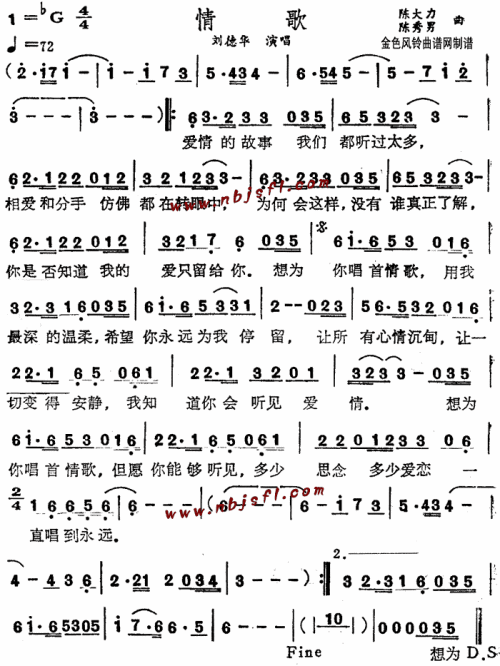 情 歌
1=♭G 4/4
♩=72
陈大力
陈秀男 曲
刘德华 演唱
金色风铃曲谱网制谱
(2·i7 i- | i- i 7 3 | 5·434- | 6·545- | 5-5 i 7 i
3--- | 3---) ‖: 6 3·2 3 3 0 3 5 | 6 5 3 2 3 3 -
爱情的故事 我们 都听过太多,
6 2·1 2 2 0 1 2 | 3 2 1 2 3 3 - | 6 3·2 3 3 0 3 5 | 6 5 3 2 3 3 -
相爱和分手 仿佛 都在转眼中, 为何会这样,没有 谁真正了解,
www.nbjsfl.com
6 2·1 2 2 0 1 2 | 3 2 1 7 6 0 3 5 | 6 i·6 5 3 0 1 6
你是否知道 我的 爱只留给你。想为 你唱首情歌, 用我
3 2·3 1 6 0 3 5 | 6 i·6 5 3 3 1 | 2--0 2 3 | 5 6·5 3 2 0 1 6
最深的温柔,希望 你永远为我 停 留, 让所 有心情沉甸,让一
2 2·1 6 5 0 6 1 | 2 2·1 3 2 0 1 | 3 2 3 3 - 0 3 5
切变得 安静, 我知 道你会听见 爱 情。 想为
6 i·6 5 3 0 1 6 | 2 2·1 6 5 0 6 1 | 2 2 0 1 2 3 3 0 6
你唱首情歌,但愿 你能够听见,多少 思念 多少爱恋 一
2/4 1 6 6 5 6 | 6--- | (6--- | 6- i 7 3 | 5·434-
直唱到永远。
www.nbjsfl.com
4-4 3 6 | 2·2 1 2 0 3 4 | 3---) :‖ 2. 3 2·3 1 6 0 3 5
6 i·6 5 3 0 5 | i 7·6 6·5 | 6--- | (|10|) | 0 0 0 0 3 5 ‖
Fine 想为 D.S